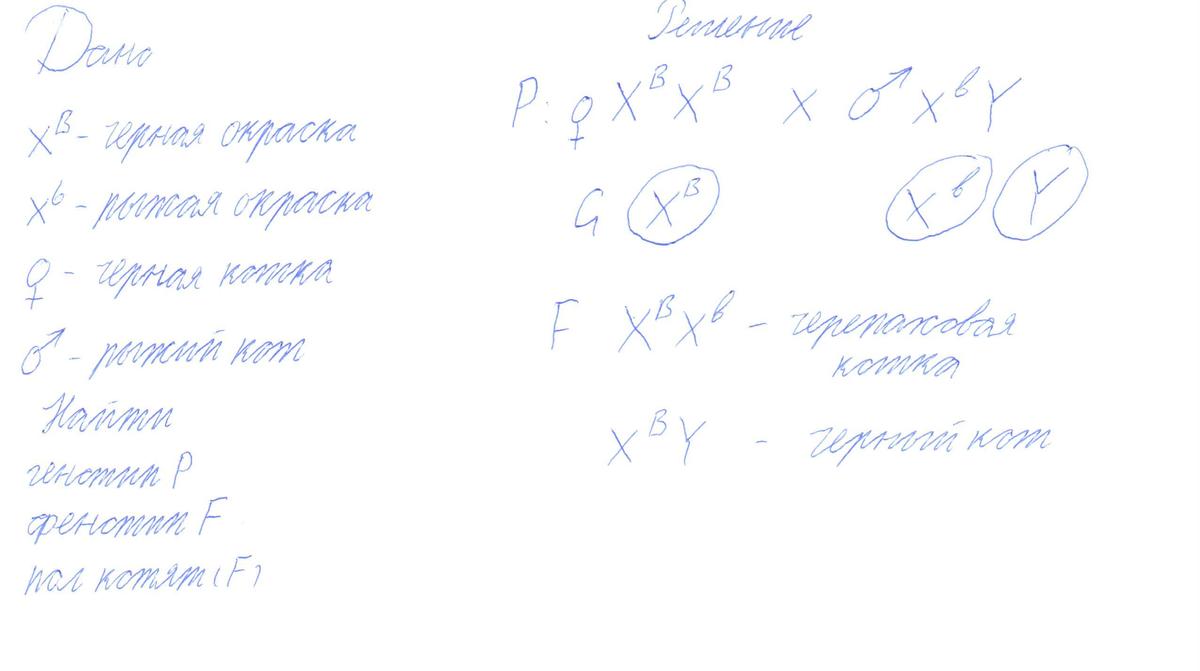 Дано
X^B - черная окраска
X^b - рыжая окраска
♀ - черная кошка
♂ - рыжий кот
Найти
генотип P
фенотип F
пол котят (F)
Решение
P: ♀ X^B X^B x ♂ X^b Y
G X^B X^b Y
F X^B X^b - черепаховая
кошка
X^B Y - черный кот